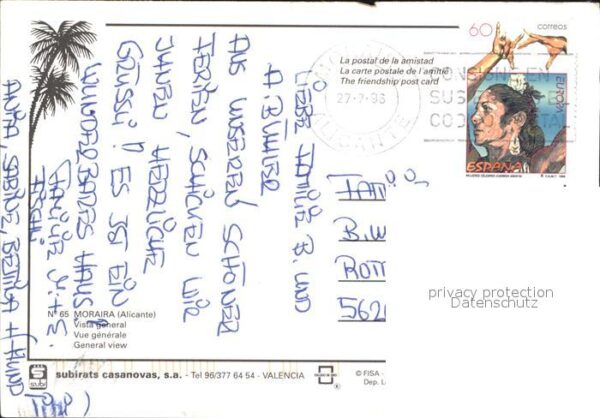 60
correos
EUROPA
ESPAÑA
La postal de la amistad
La carte postale de l'amitié
The friendship post card
27-7-96
ALICANTE
LIEBE FAMILIE B. UND
AUS UNSEREN SCHÖNEN
FERIEN, SCHICKEN WIR
IHNEN HERZLICHE
GRÜSSE! ES IST EIN
WUNDERBARES HAUS!
FAMILIE
ANJA, SABINE, BETTINA + HUND
FAM
B.W
ROTT
562
privacy protection
Datenschutz
Nº 65 MORAIRA (Alicante)
Vista general
Vue générale
General view
subi
subirats casanovas, s.a. - Tel 96/377 64 54 - VALENCIA
© FISA
Dep. L